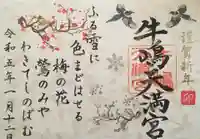 謹賀新年
卯
牛嶋天満宮
ふる雪に
色まどはせる
梅の花
鶯のみや
わきてしのばむ
令和五年一月十一日